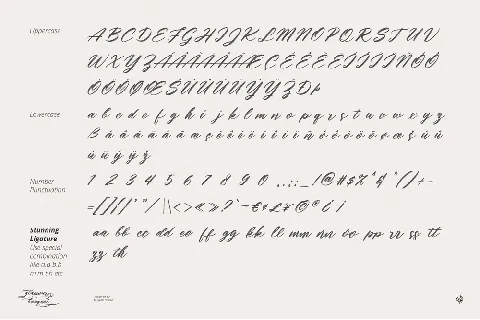 Uppercase
A B C D E F G H I J K L M N O P Q R S T U V
W X Y Z À Á Â Ã Ä Å Æ Ç È É Ê Ë Ì Í Î Ï Ñ Ò Ó
Ô Õ Ö Ø Œ Š Ù Ú Û Ü Ý Ÿ Ž Ð Þ
Lowercase
a b c d e f g h i j k l m n o p q r s t u v w x y z
ß à á â ã ä å æ ç è é ê ë ì í î ï ñ ò ó ô õ ö ø œ š ù ú
û ü ý ÿ ž
Number
Punctuation
1 2 3 4 5 6 7 8 9 0 . , : ; _ ! @ # $ % ^ & * ( ) + -
= [ ] { } ' " / | \ < > « » ? ` ~ € ¢ £ ¥ © ® ¿ ¡
Stunning
Ligature
Use special
combination
like a.a b.b
m.m t.h etc
aa bb cc dd ee ff gg kk ll mm nn oo pp rr ss tt
zz th